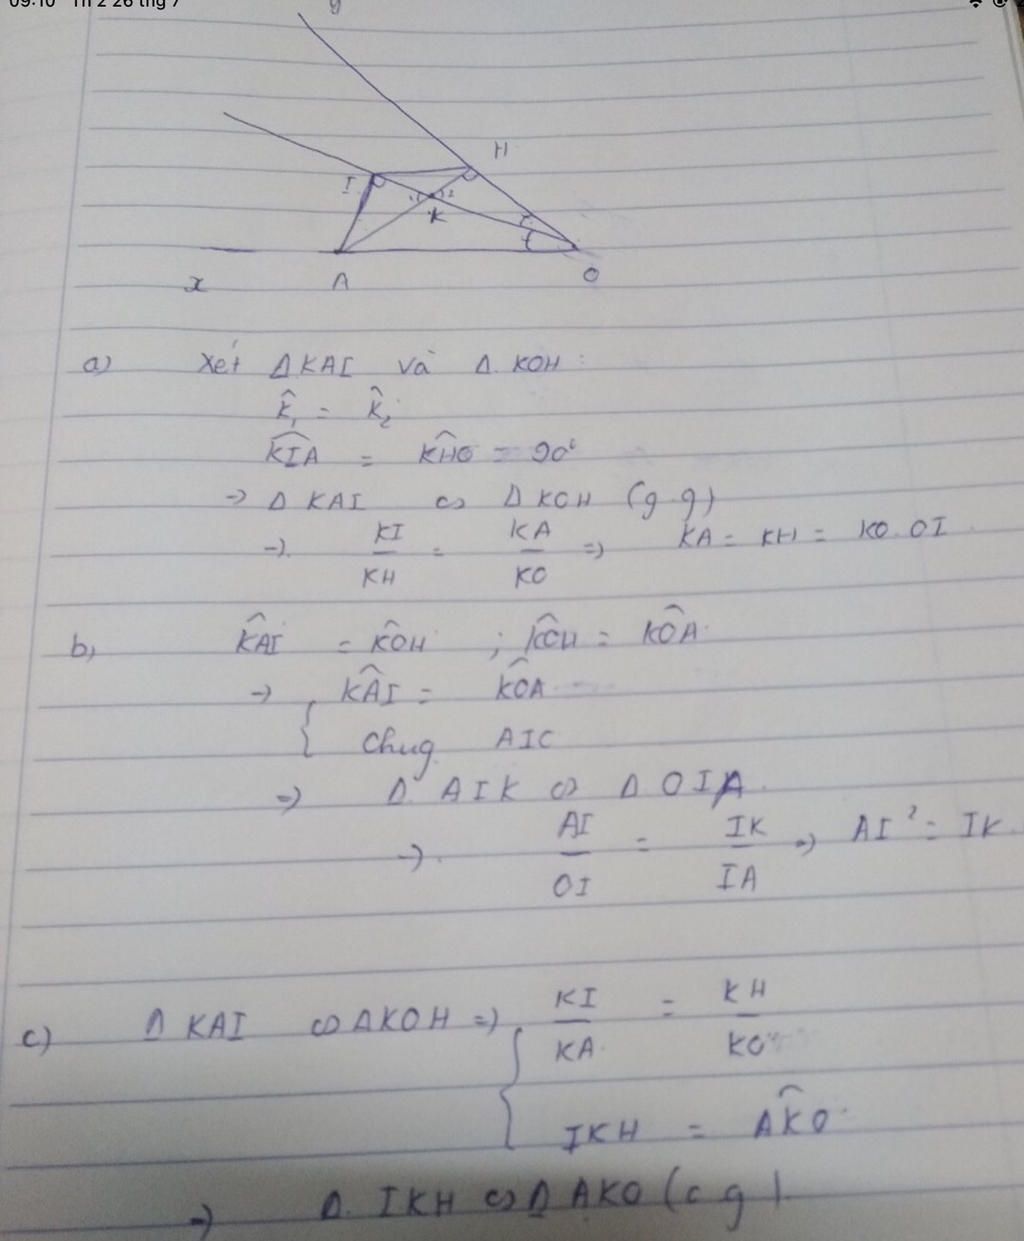 09:10 Th 2 26 thg 7
y
H
I
1 2
K
x A O
a) Xét Δ KAI và Δ. KOH :
K̂₁ = K̂₂
K͡IA = K͡HO = 90°
-> Δ KAI ∽ Δ KOH (g.g)
-> KI/KH = KA/KO => KA = KH = KO.OI
b, K͡AI = K͡OH ; K͡OH = K͡OA
-> { K͡AI = K͡OA
Chug AIC
=> Δ AIK ∽ Δ OIA
-> AI/OI = IK/IA => AI² = IK.
c) Δ KAI ∽ Δ KOH => { KI/KA = KH/KO
IKH = A͡KO
=> Δ. IKH ∽ Δ AKO (c g )